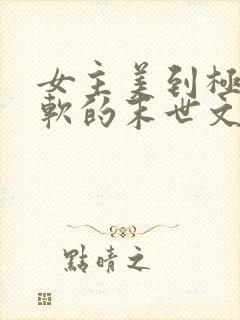 女主美到極
軟的末世文
點晴之